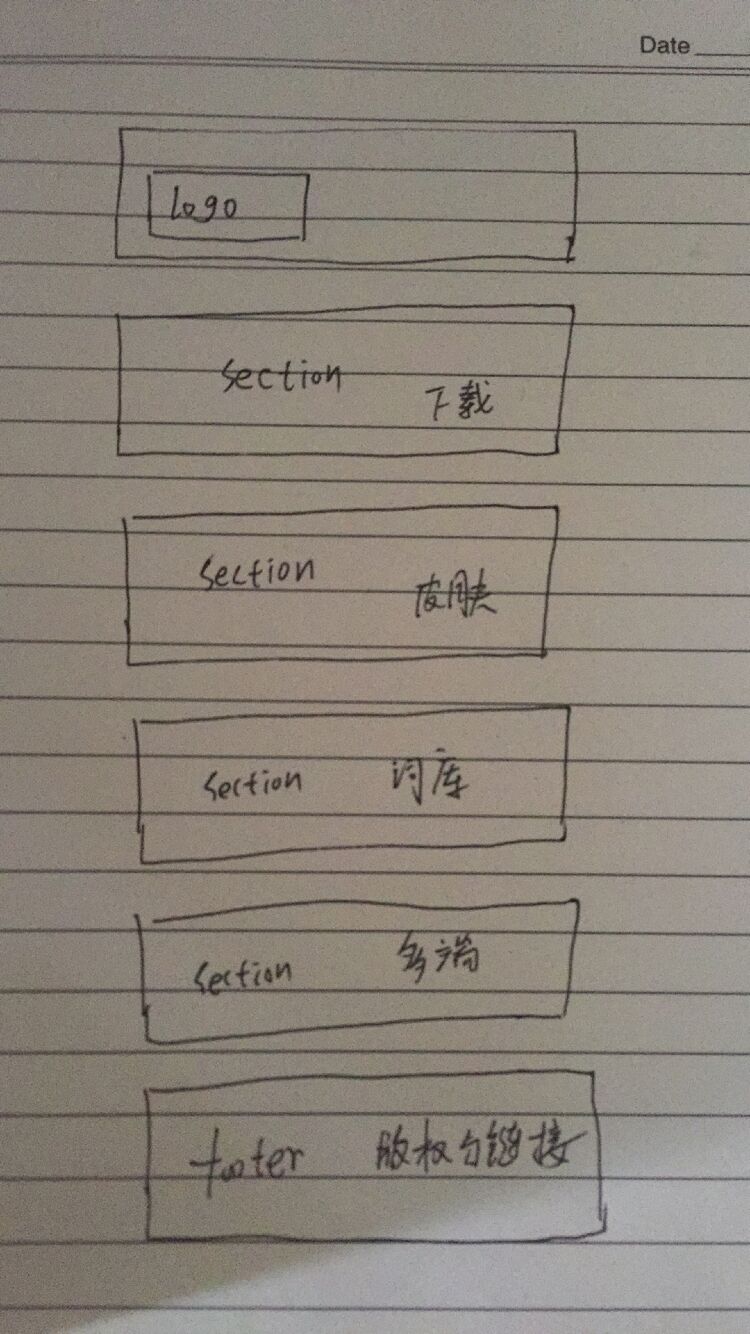 Date
logo
section 下载
section 皮肤
section 词库
section 多端
footer 版权与链接